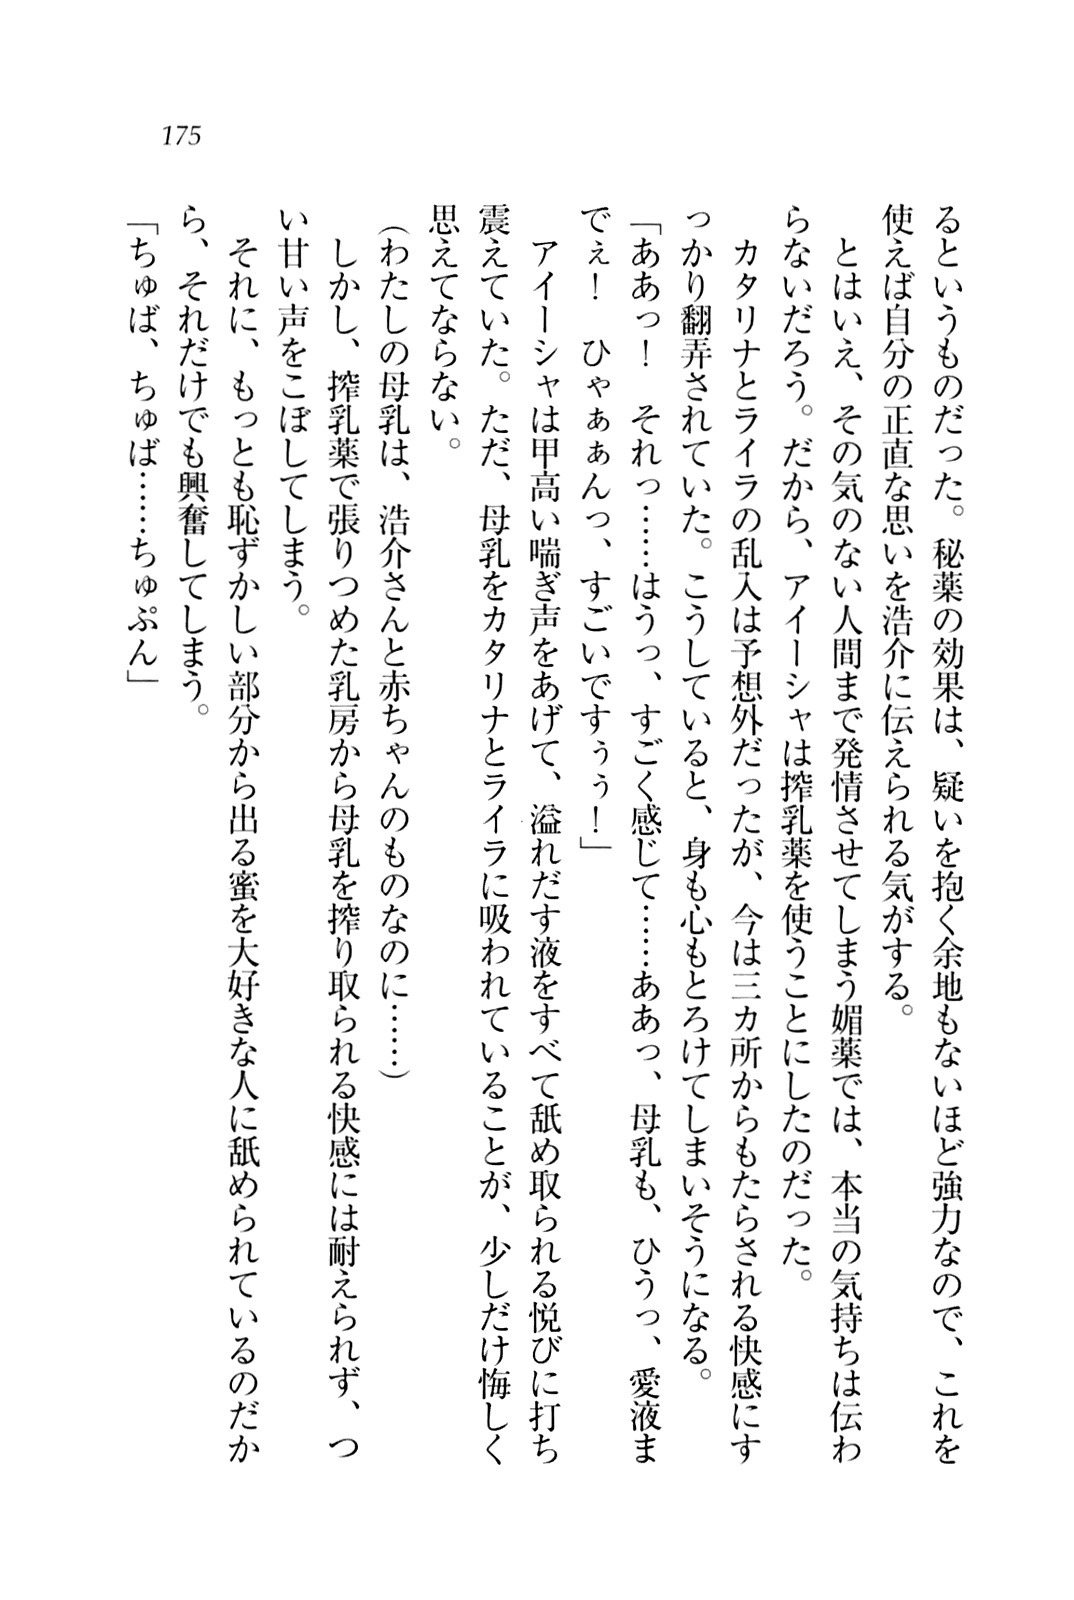 175
るというものだった。秘薬の効果は、疑いを抱く余地もないほど強力なので、これを
使えば自分の正直な思いを浩介に伝えられる気がする。
　とはいえ、その気のない人間まで発情させてしまう媚薬では、本当の気持ちは伝わ
らないだろう。だから、アイーシャは搾乳薬を使うことにしたのだった。
　カタリナとライラの乱入は予想外だったが、今は三カ所からもたらされる快感にす
っかり翻弄されていた。こうしていると、身も心もとろけてしまいそうになる。
「ああっ！　それっ……はうっ、すごく感じて……ああっ、母乳も、ひうっ、愛液ま
でぇ！　ひゃぁぁんっ、すごいですぅぅ！」
　アイーシャは甲高い喘ぎ声をあげて、溢れだす液をすべて舐め取られる悦びに打ち
震えていた。ただ、母乳をカタリナとライラに吸われていることが、少しだけ悔しく
思えてならない。
（わたしの母乳は、浩介さんと赤ちゃんのものなのに……）
　しかし、搾乳薬で張りつめた乳房から母乳を搾り取られる快感には耐えられず、つ
い甘い声をこぼしてしまう。
　それに、もっとも恥ずかしい部分から出る蜜を大好きな人に舐められているのだか
ら、それだけでも興奮してしまう。
「ちゅば、ちゅば……ちゅぷん」